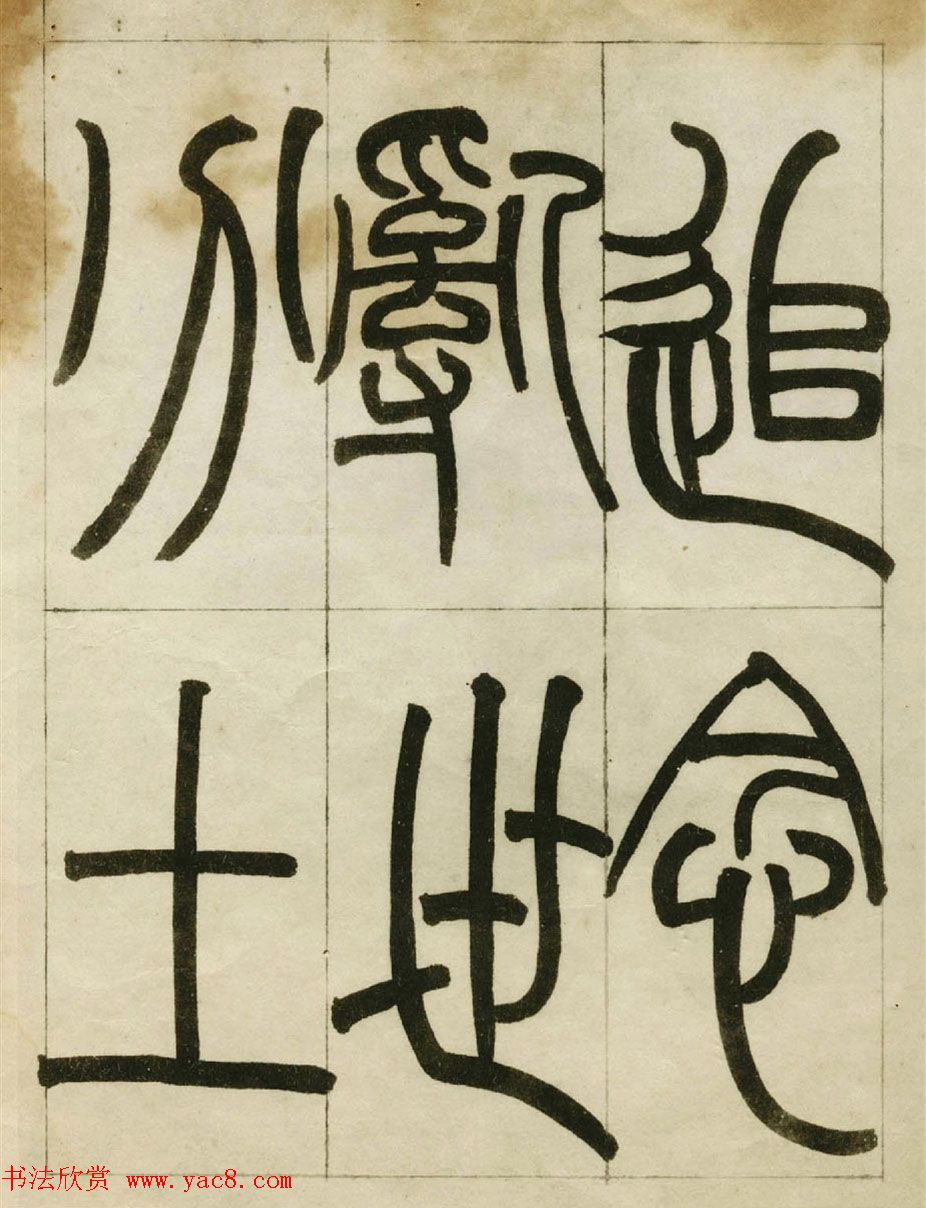 追念
亂世
分土
书法欣赏 www.yac8.com